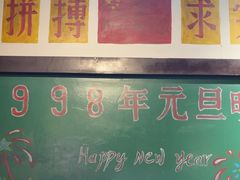 拼搏 求
998年元旦
Happy New year